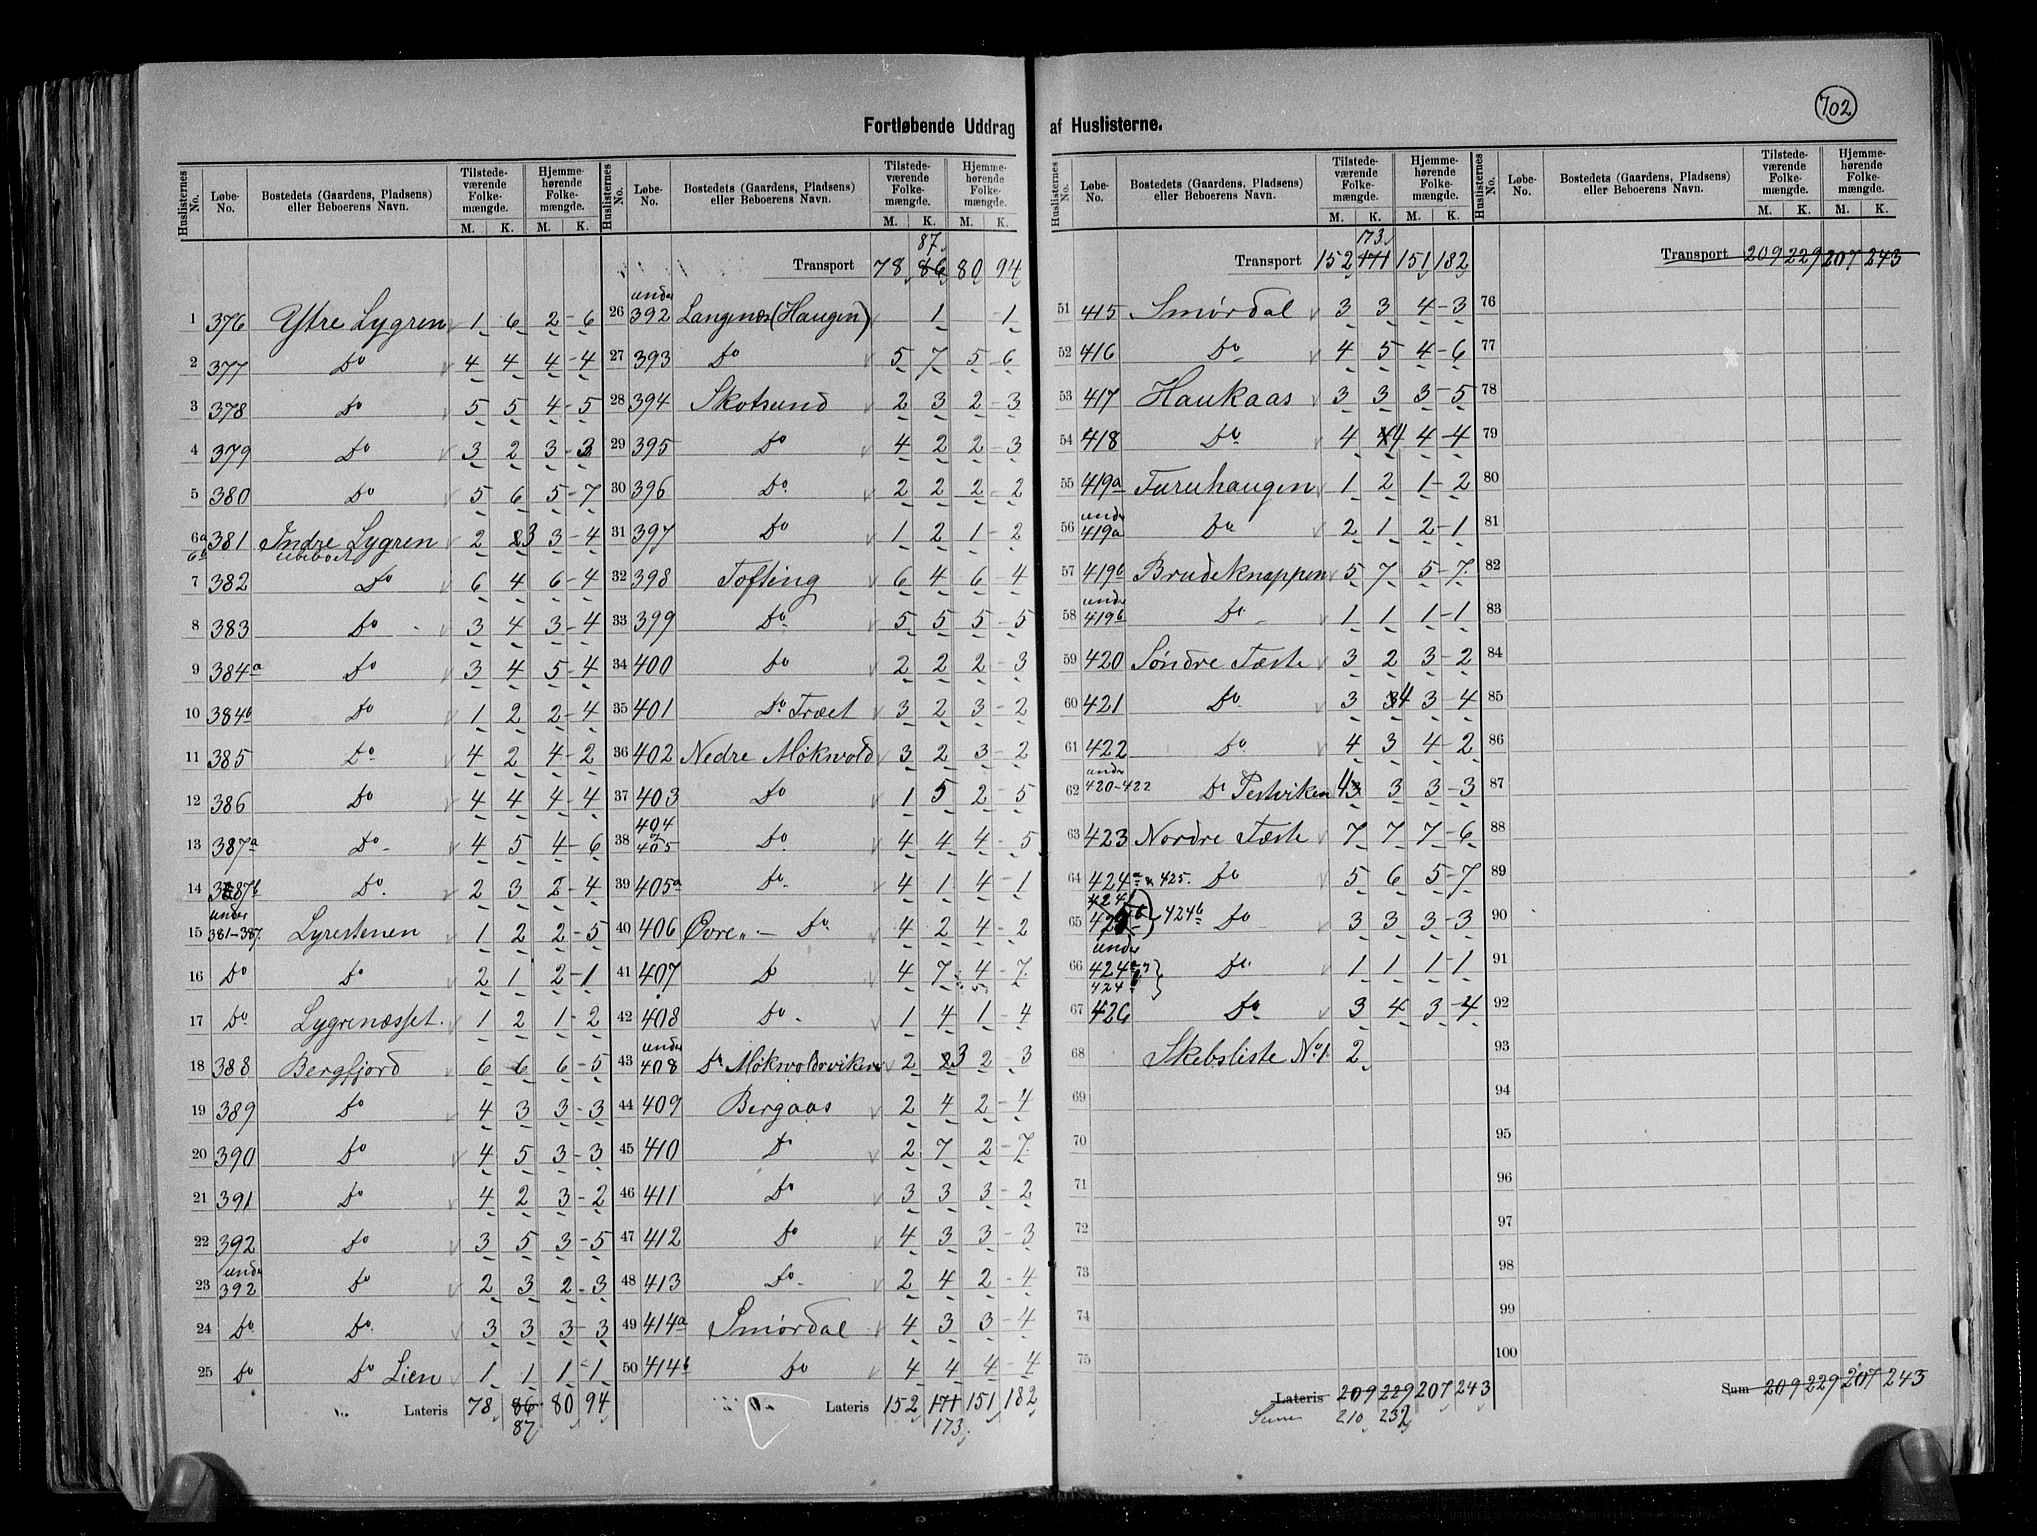 702
Fortløbende Uddrag af Huslisterne.
Huslisternes No. Løbe-No. Bostedets (Gaardens, Pladsens) eller Beboerens Navn. Tilstede-værende Folke-mængde. M. K. Hjemme-hørende Folke-mængde. M. K.
1 376 Ytre Lygren 1 6 2-6
2 377 Do 4 4 4-4
3 378 Do 5 5 4-5
4 379 Do 3 2 3-3
5 380 Do 5 6 5-7
6a 381 Indre Lygren 2 3 3-4
6b Ubeboet
7 382 Do 6 4 6-4
8 383 Do 3 4 3-4
9 384a Do 3 4 5-4
10 384b Do 1 2 2-4
11 385 Do 4 2 4-2
12 386 Do 4 4 4-4
13 387a Do 4 5 4-6
14 387b Do 2 3 2-4
15 under 381-387 Lyrestenen 1 2 2-5
16 Do Do 2 1 2-1
17 Do Lygrenæsset 1 2 1-2
18 388 Bergfjord 6 6 6-5
19 389 Do 4 3 3-3
20 390 Do 4 5 3-3
21 391 Do 4 2 3-2
22 392 Do 3 5 3-5
23 under 392 Do 2 3 2-3
24 Do Do 3 3 3-3
25 Do Do Lien 1 1 1-1
Lateris 78 86 80 94
87
Huslisternes No. Løbe-No. Bostedets (Gaardens, Pladsens) eller Beboerens Navn. Tilstede-værende Folke-mængde. M. K. Hjemme-hørende Folke-mængde. M. K.
87
Transport 78 86 80 94
26 under 392 Langenes (Haugen) 1 -1
27 393 Do 5 7 5-6
28 394 Skotsund 2 3 2-3
29 395 Do 4 2 2-3
30 396 Do 2 2 2-2
31 397 Do 1 2 1-2
32 398 Tofting 6 4 6-4
33 399 Do 5 5 5-5
34 400 Do 2 2 2-3
35 401 Do Træet 3 2 3-2
36 402 Nedre Møkvold 3 2 3-2
37 403 Do 1 5 2-5
38 404 405 Do 4 4 4-5
39 405a Do 4 1 4-1
40 406 Øvre „ - Do 4 2 4-2
41 407 Do 4 7 4-7
42 408 Do 1 4 1-4
43 under 408 Do Møkvoldsviken 2 3 2-3
44 409 Bergaas 2 4 2-4
45 410 Do 2 7 2-7
46 411 Do 3 3 3-2
47 412 Do 4 3 3-3
48 413 Do 2 4 2-4
49 414a Smørdal 4 3 3-4
50 414b Do 4 4 4-4
Lateris 152 171 151 182
173
Huslisternes No. Løbe-No. Bostedets (Gaardens, Pladsens) eller Beboerens Navn. Tilstede-værende Folke-mængde. M. K. Hjemme-hørende Folke-mængde. M. K.
173
Transport 152 171 151 182
51 415 Smørdal 3 3 4-3
52 416 Do 4 5 4-6
53 417 Haukaas 3 3 3-5
54 418 Do 4 4 4-4
55 419a Furuhaugen 1 2 1-2
56 under 419a Do 2 1 2-1
57 419b Brudeknappen 5 7 5-7
58 under 419b Do 1 1 1-1
59 420 Søndre Tæste 3 2 3-2
60 421 Do 3 4 3-4
61 422 Do 4 3 4-2
62 under 420-422 Do Pestviken 4 3 3-3
63 423 Nordre Tæste 7 7 7-6
64 424a & 425. Do 5 6 5-7
65 424b Do 3 3 3-3
66 under 424a 424 Do 1 1 1-1
67 426 Do 3 4 3-4
68 Skibsliste No 1 2
69
70
71
72
73
74
75
Lateris 209 229 207 243
Sum 210 232
Huslisternes No. Løbe-No. Bostedets (Gaardens, Pladsens) eller Beboerens Navn. Tilstede-værende Folke-mængde. M. K. Hjemme-hørende Folke-mængde. M. K.
Transport 209 229 207 243
76
77
78
79
80
81
82
83
84
85
86
87
88
89
90
91
92
93
94
95
96
97
98
99
100
Sum 209 229 207 243